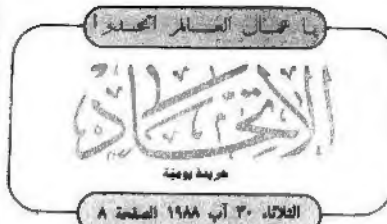 يا عمال العالم اتحدوا
الاتحاد
جريدة يومية
الثلاثاء ٣٠ آب ١٩٨٨ الصفحة ٨